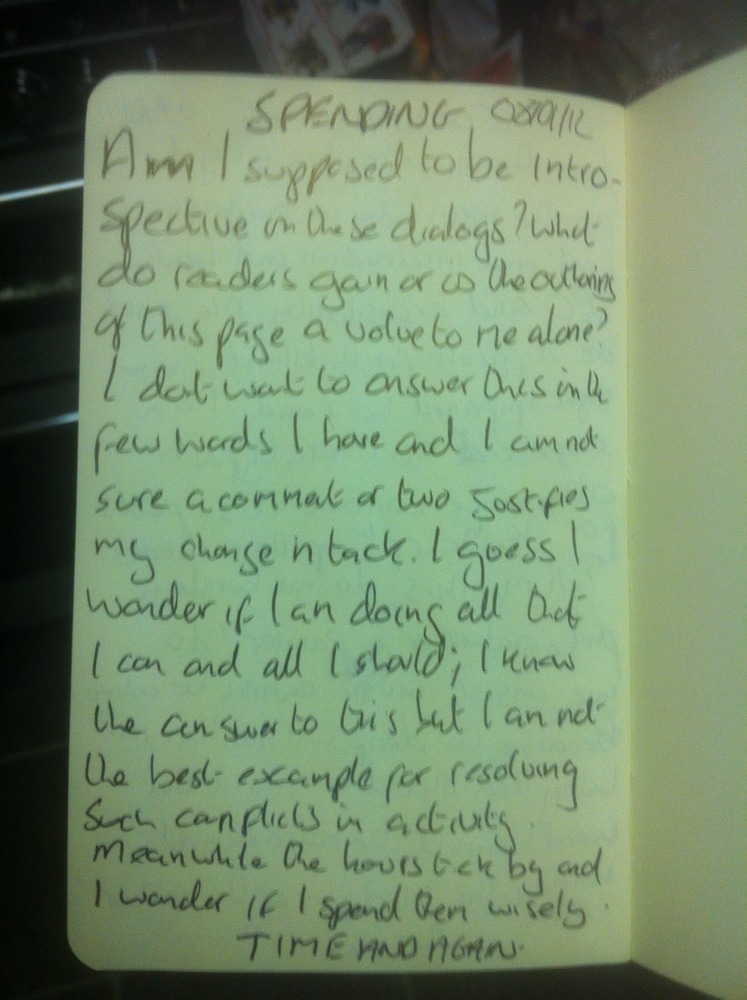 SPENDING 08/9/12
Am I supposed to be intro-
spective in these dialogs? What
do readers gain or is the outhering
of this page a value to me alone?
I dont want to answer this in the
few words I have and I am not
sure a comment or two justifies
my change in tack. I guess I
wonder if I am doing all that
I can and all I should; I know
the answer to this but I am not
the best example for resolving
such conflicts in activity.
Meanwhile the hours tick by and
I wonder if I spend them wisely.
TIME AND AGAIN.